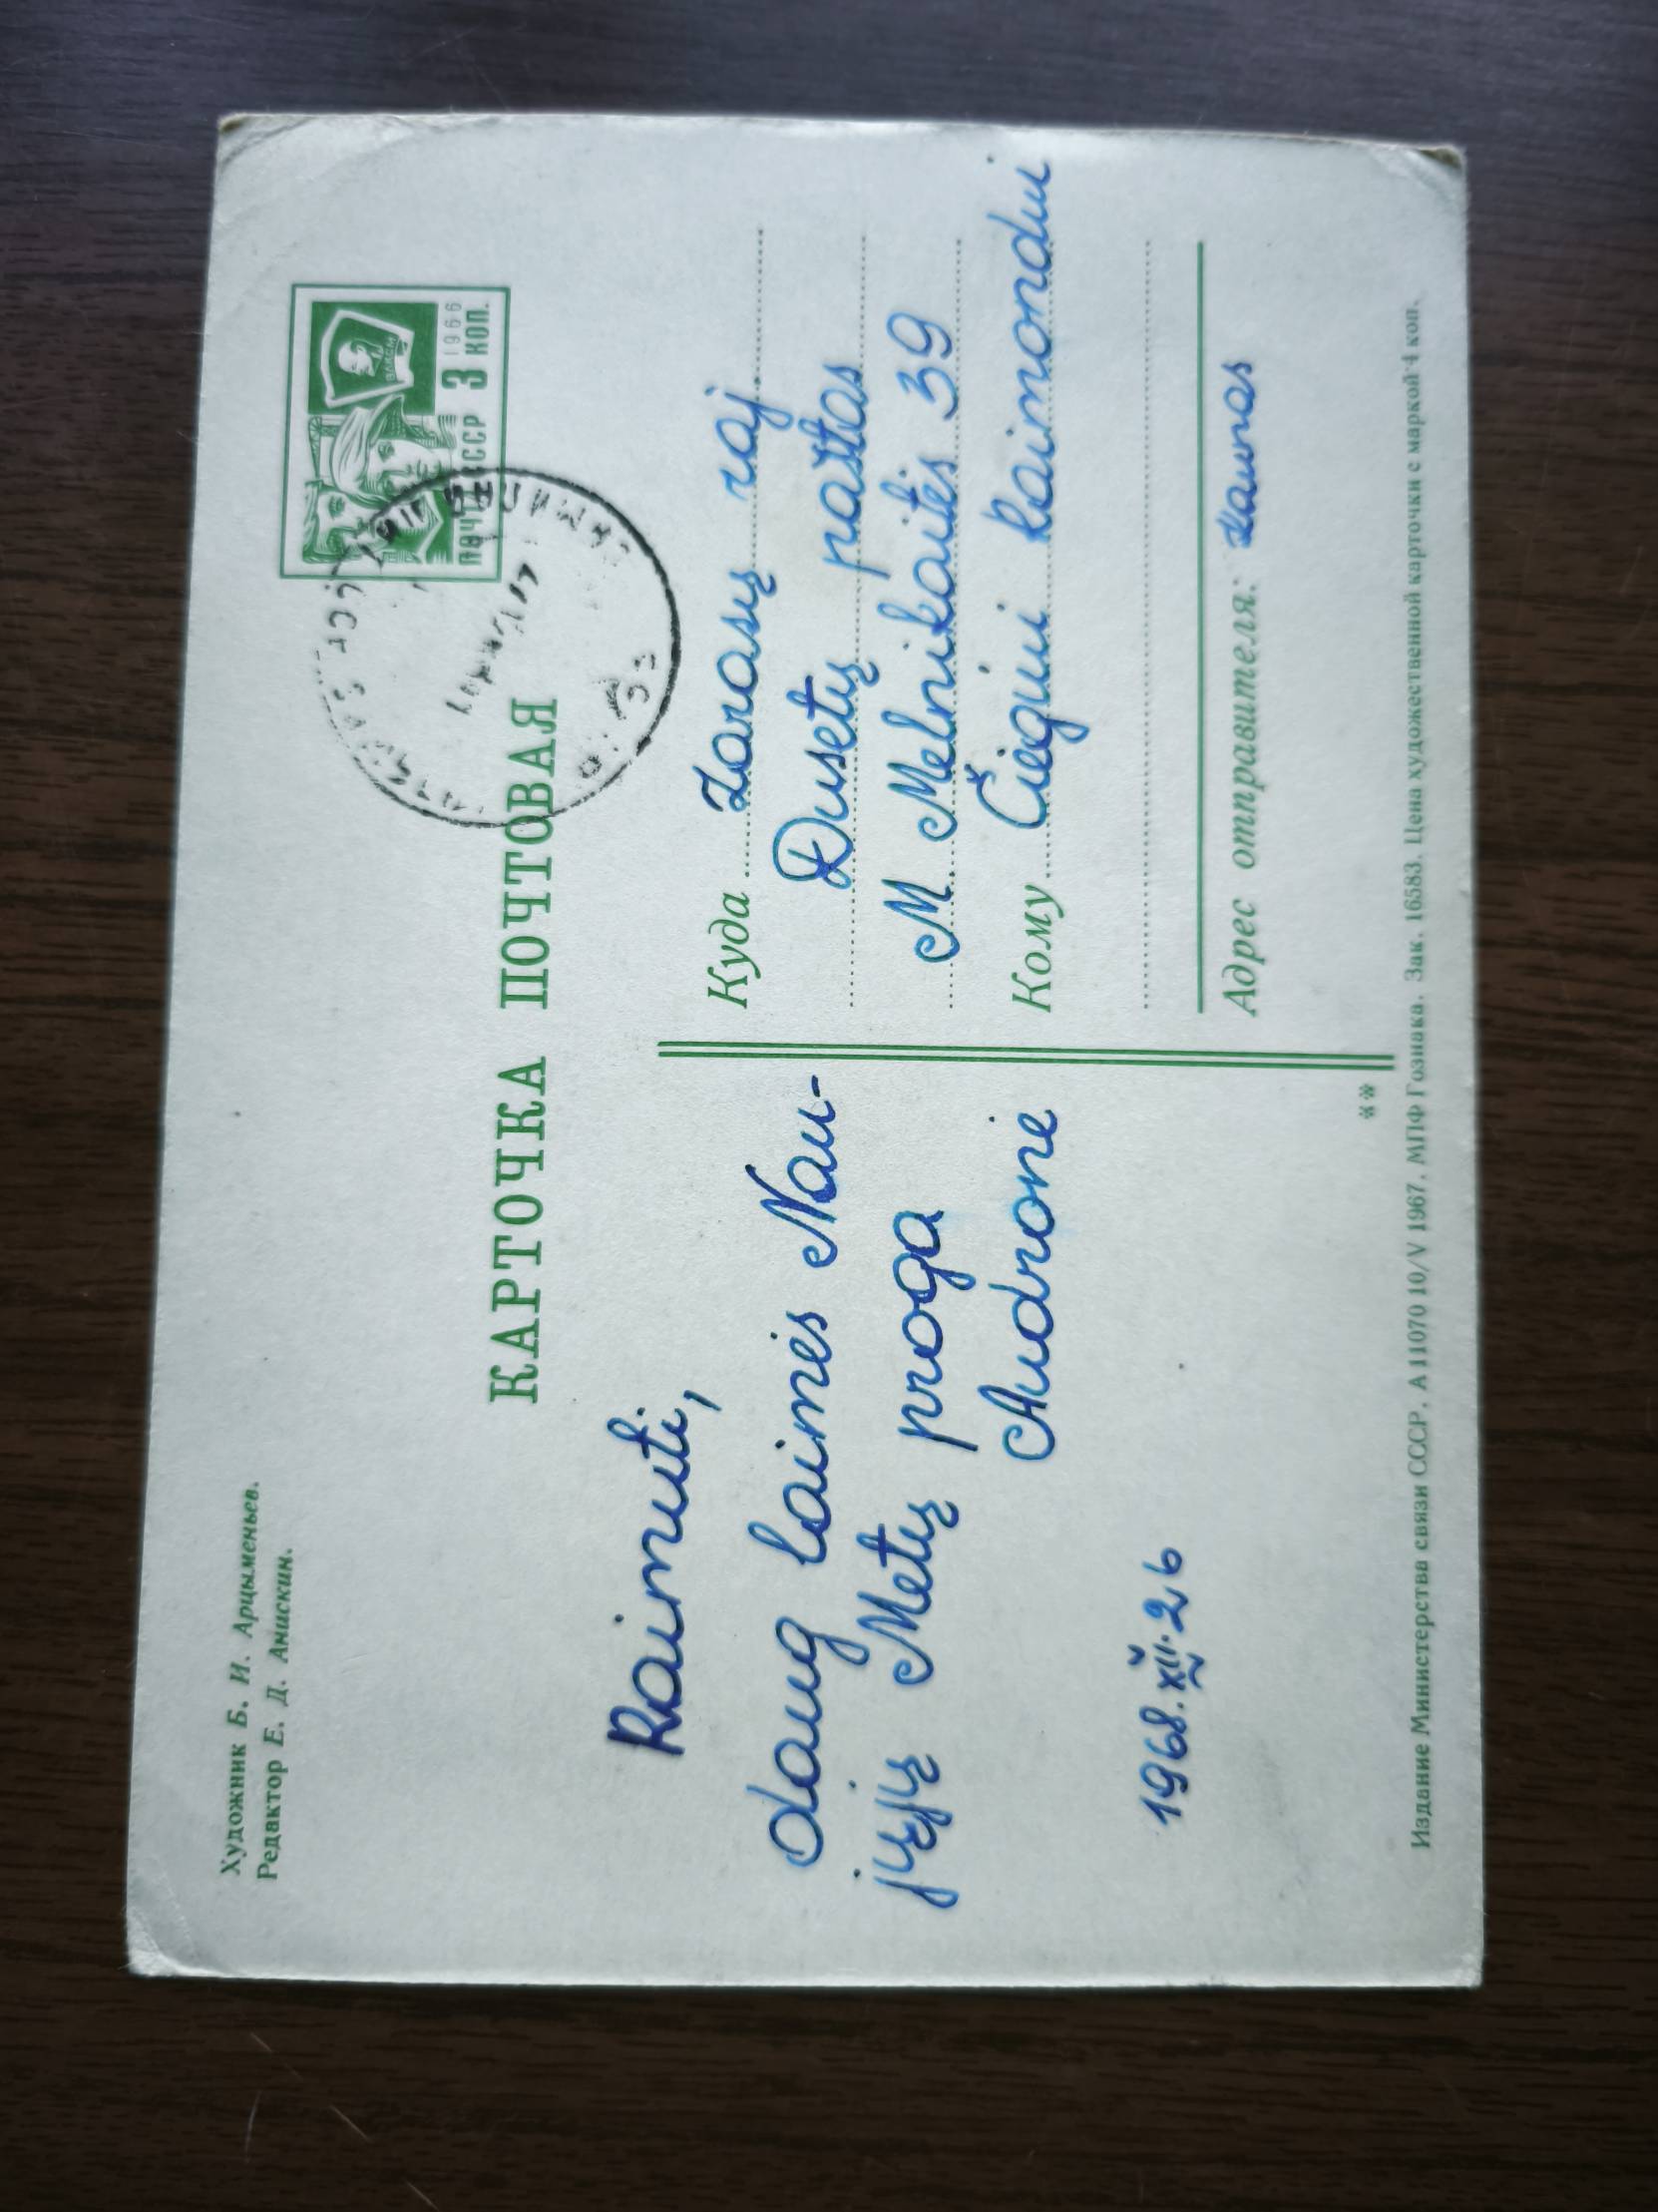 Художник Б. И. Арцыменьев.
Редактор Е. Д. Анискин.
КАРТОЧКА ПОЧТОВАЯ
ВЛКСМ
1966
ПОЧТА СССР 3 КОП.
Raimuti,
daug laimės Nau-
jųjų Metų proga
Audronė
1968.XII.26
Куда Zarasų raj.
Dusetų paštas
M. Melnikaitės 39
Кому Čiegiui Raimondui
Адрес отправителя: Kaunas
**
Издание Министерства связи СССР. А 11070 10/V 1967. МПФ Гознака. Зак. 16583. Цена художественной карточки с маркой 4 коп.